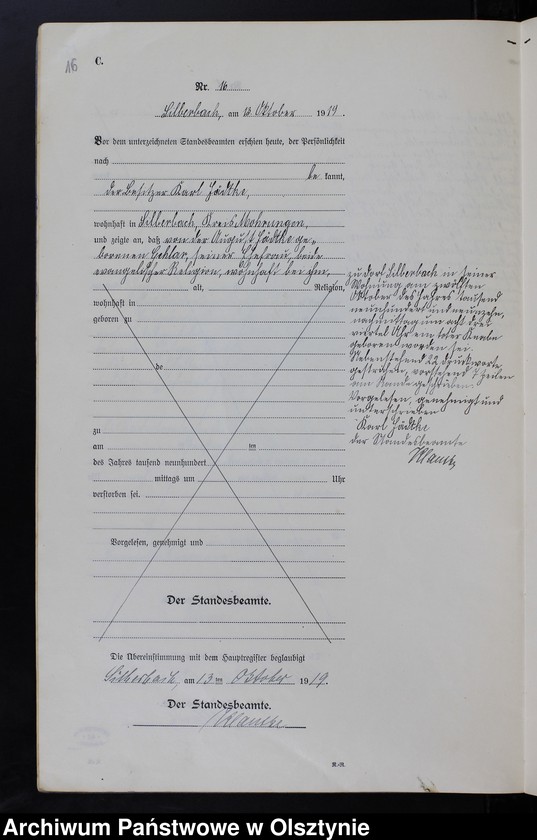 16
C.
Nr. 16
Silberbach, am 13 Oktober 1919.
Vor dem unterzeichneten Standesbeamten erschien heute, der Persönlichkeit
nach
be kannt,
der Besitzer Karl Jädtke,
wohnhaft in Silberbach, Kreis Mohrungen,
und zeigte an, daß von der August Jädtke ge-
borenen Gehlar, seiner Ehefrau, beide
evangelischer Religion, wohnhaft bei ihm,
alt, Religion,
wohnhaft in
geboren zu
de
zu
am ten
des Jahres tausend neunhundert
mittags um Uhr
verstorben sei.
Vorgelesen, genehmigt und
Der Standesbeamte.
zu Dorf Silberbach in seiner
Wohnung am zwölften
Oktober des Jahres tausend
neunhundert und neunzehn,
nachmittag um acht drei
viertel Uhr ein toter Knabe
geboren worden sei.
Nebenstehend 22 Druckworte
gestrichen, vorstehend 7 Zeilen
am Rande geschrieben
Vorgelesen, genehmigt und
unterschrieben
Karl Jädtke
der Standesbeamte
Die Übereinstimmung mit dem Hauptregister beglaubigt
Silberbach, am 13 ten Oktober 1919.
Der Standesbeamte.
Archiwum Państwowe w Olsztynie